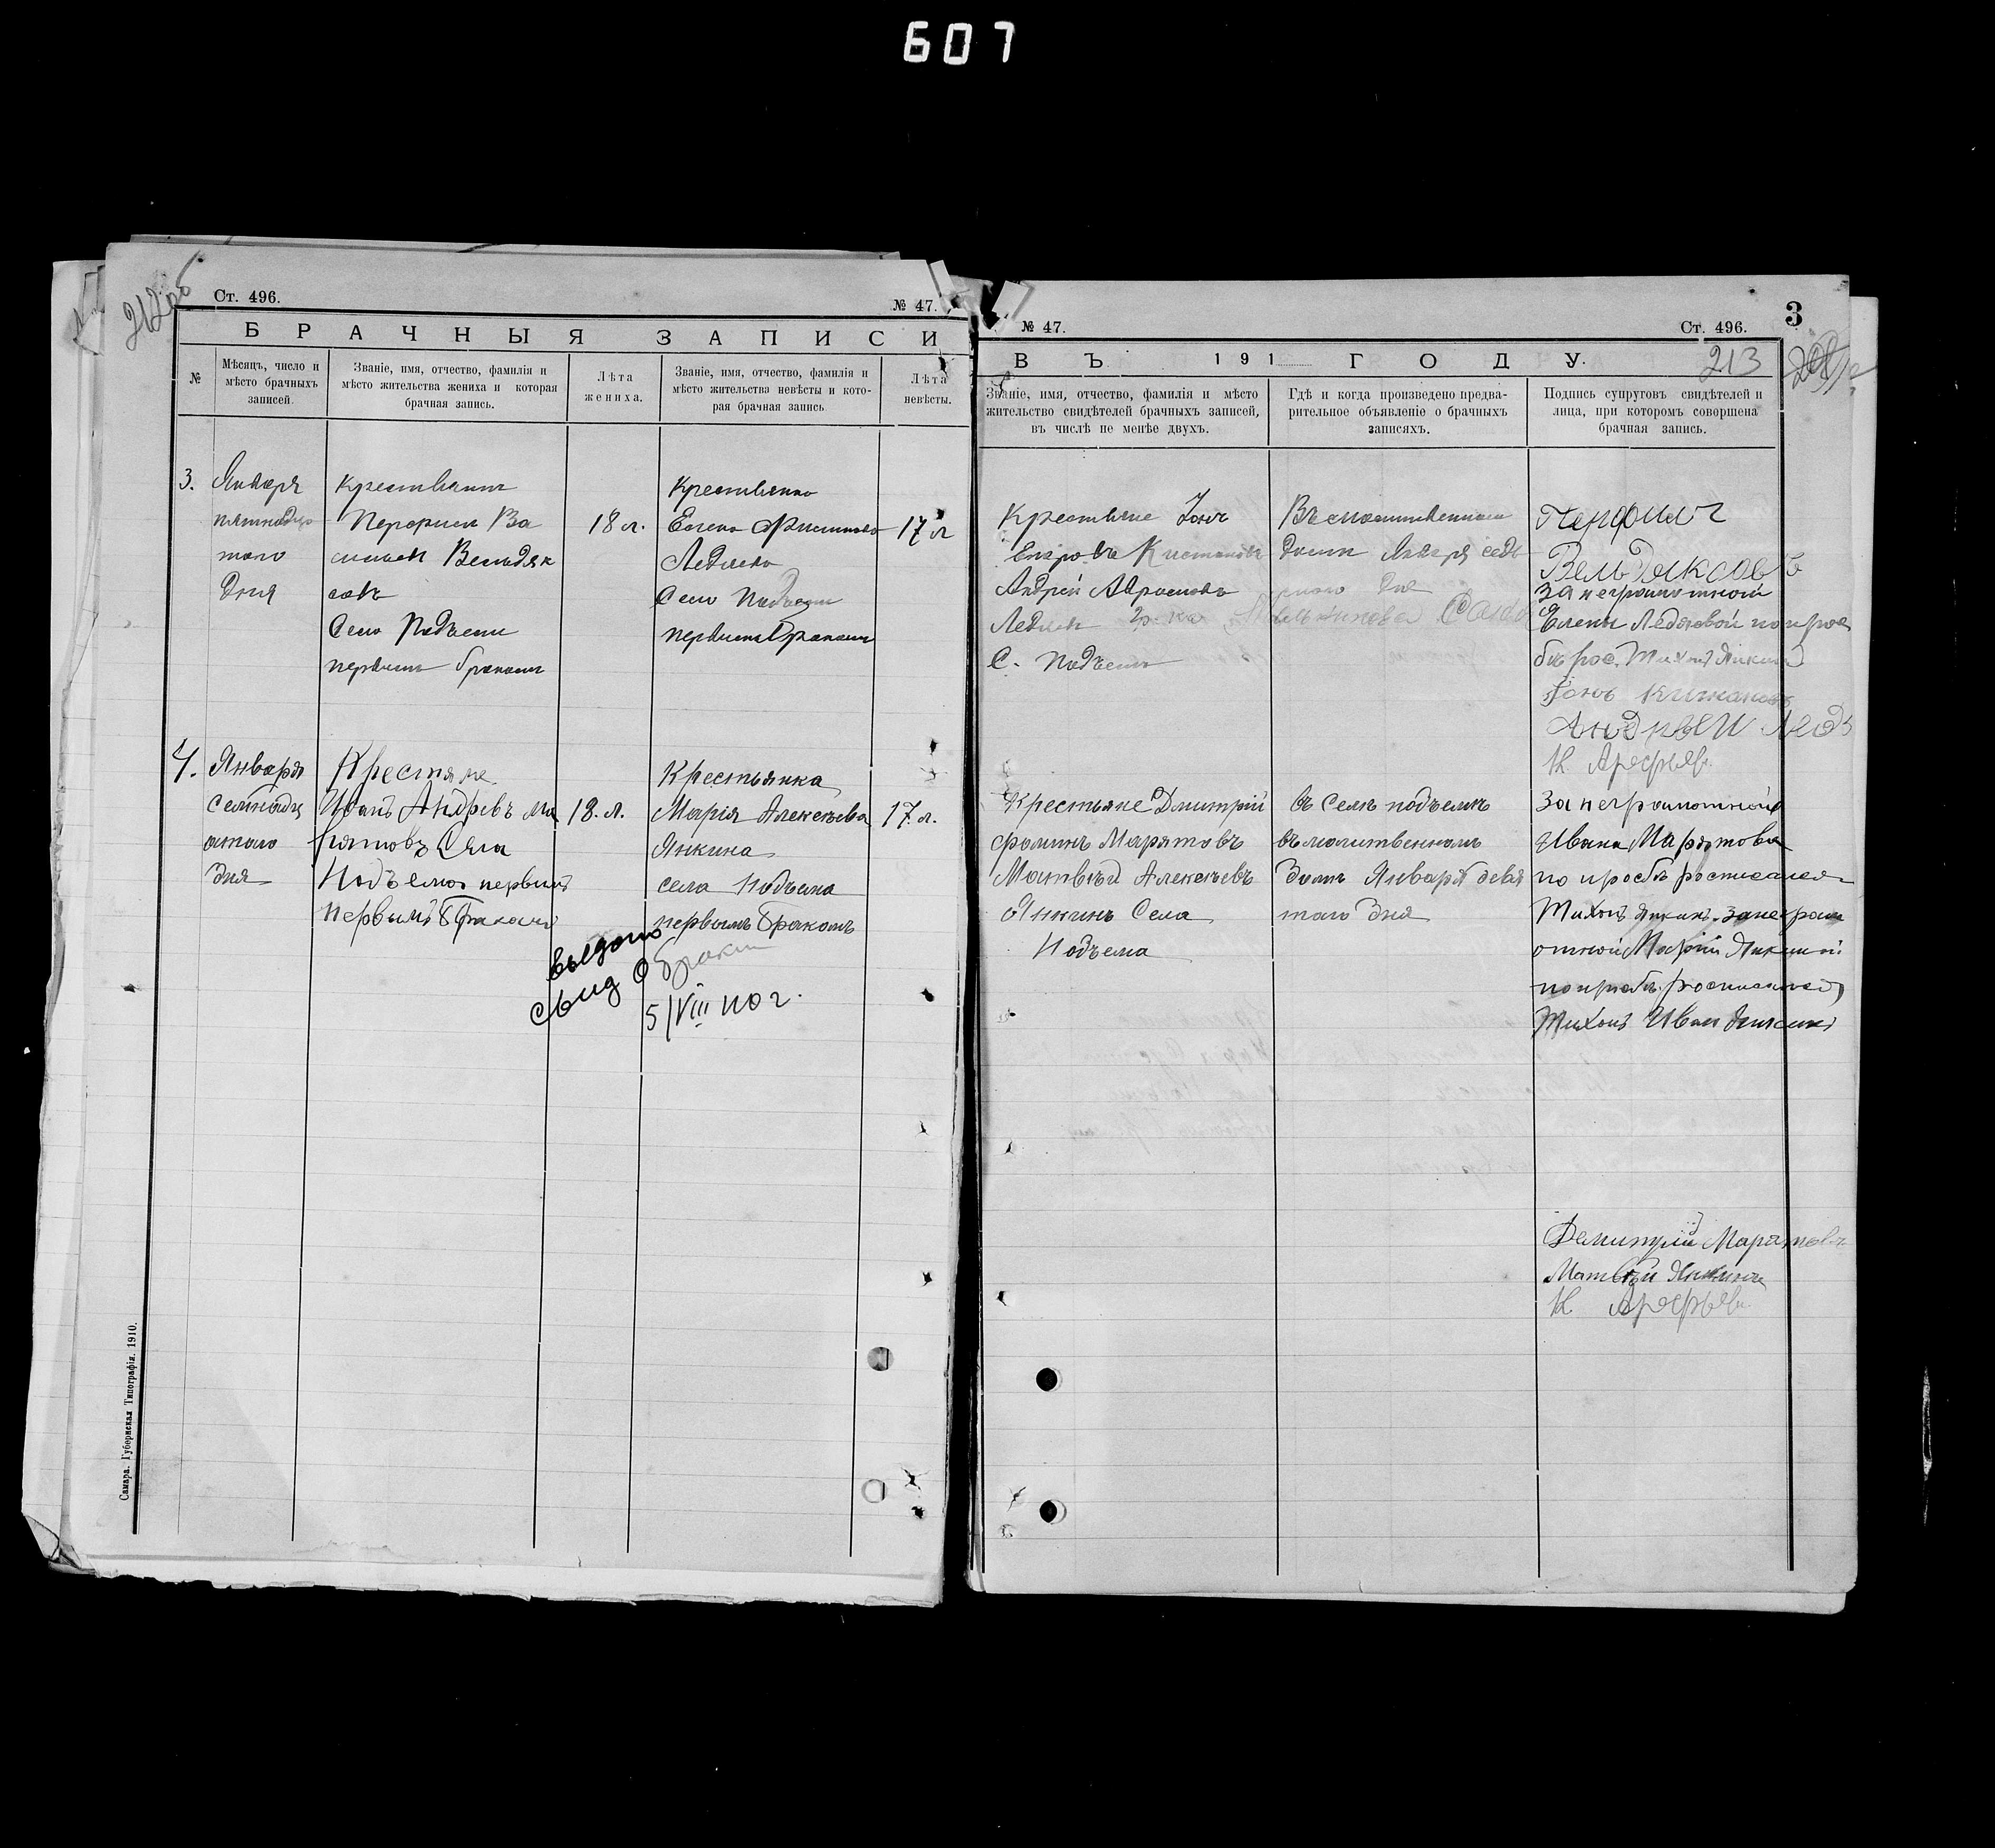 607
Ст. 496.
№ 47.
БРАЧНЫЯ ЗАПИСИ
№
Мѣсяцъ, число и
мѣсто брачныхъ
записей.
Званіе, имя, отчество, фамилія и
мѣсто жительства жениха и которая
брачная запись.
Лѣта
жениха.
Званіе, имя, отчество, фамилія и
мѣсто жительства невѣсты и кото-
рая брачная запись
Лѣта
невѣсты.
3.
Января
пятнадца
таго
дня
Крестьянинъ
Ва
сильевъ Вельдяк
совъ
Село Подъемъ
первымъ бракомъ
18 л.
Крестьянка
Елена
Ледяева
Село Подъемъ
первымъ бракомъ
17 л
4.
Января
семнадца
атаго
дня
Крестяне
Иванъ Андревъ Ма
рятовъ Села
Подъема первым
первымъ бракомъ
18. л.
Крестьянка
Марія Алексѣева
Янкина
села Подъема
первымъ бракомъ
17. л.
выдано
свид о браки
5/VIII 110 г.
Самара. Губернская Типографія. 1910.
№ 47.
Ст. 496.
3
213
ВЪ 191 ГОДУ.
Званіе, имя, отчество, фамилія и мѣсто
жительство свидѣтелей брачныхъ записей,
въ числѣ не менѣе двухъ.
Гдѣ и когда произведено предва-
рительное объявленіе о брачныхъ
записяхъ.
Подпись супруговъ свидѣтелей и
лица, при которомъ совершена
брачная запись.
Крестьяне
Андрей
С. Подъемъ
Въ молитвенномъ
домѣ Января седь
Вельдяксовъ
за неграмотной
Елены Ледяевой по прос
бѣ рос. Тихонъ Янкинъ
Андрей Ледя
К. Арефьевъ
Крестьяне Дмитрій
Фоминъ Марятовъ
Матвѣй Алексѣевъ
Янкинъ Села
Подъема
въ селѣ подъемѣ
въ молитвенномъ
домѣ Января девя
таго дня
за неграмотной
Ивана Марятова
по просбѣ росписался
Тихонъ Янкинъ. за неграм
отной Марій Янкиной
по просбѣ росписался
Тихонъ Иван Янкинъ
Демитрій Марятовъ
Матвѣй Янкинъ
К. Арефьевъ